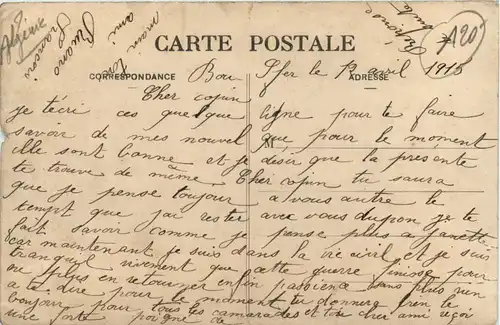 Algérie
A20
CARTE POSTALE
CORRESPONDANCE
ADRESSE
Bou Sfer le 12 avril 1915
Cher cojin
je técri ces quelque ligne pour te faire
savoir de mes nouvel que pour le moment
elle sont bonne et je désir que la présente
te trouve de même. Cher cojin tu saura
que je pense toujour a vous autre le
tempt que j'ai rester avec vous je te
fait savoir comme je pense plus a
car maintenant je suis dans la vie civil et je suis
tranquil vivement que cette guerre finisse pour
ne plus en retour enfin passiena sans plus rien
a te dire pour le moment tu donnera bien le
bonjour pour tous les camarades et toi cher ami reçoi
une forte poigné de
main
ami
François
Réponse